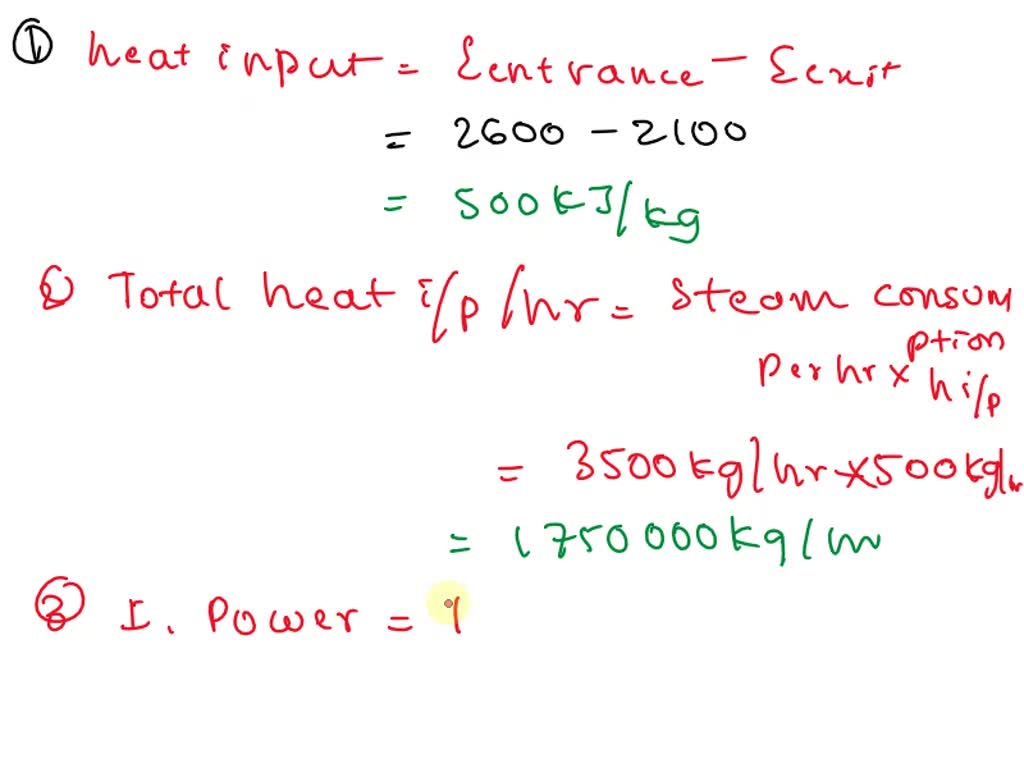 ① heat input = Eentrance - Eexit
= 2600 - 2100
= 500 kJ/kg
② Total heat i/p /hr = steam consum
ption
per hr × h i/p
= 3500 kg/hr × 500 kg/hr
= 1750000 kg/hr
③ I. Power = 1